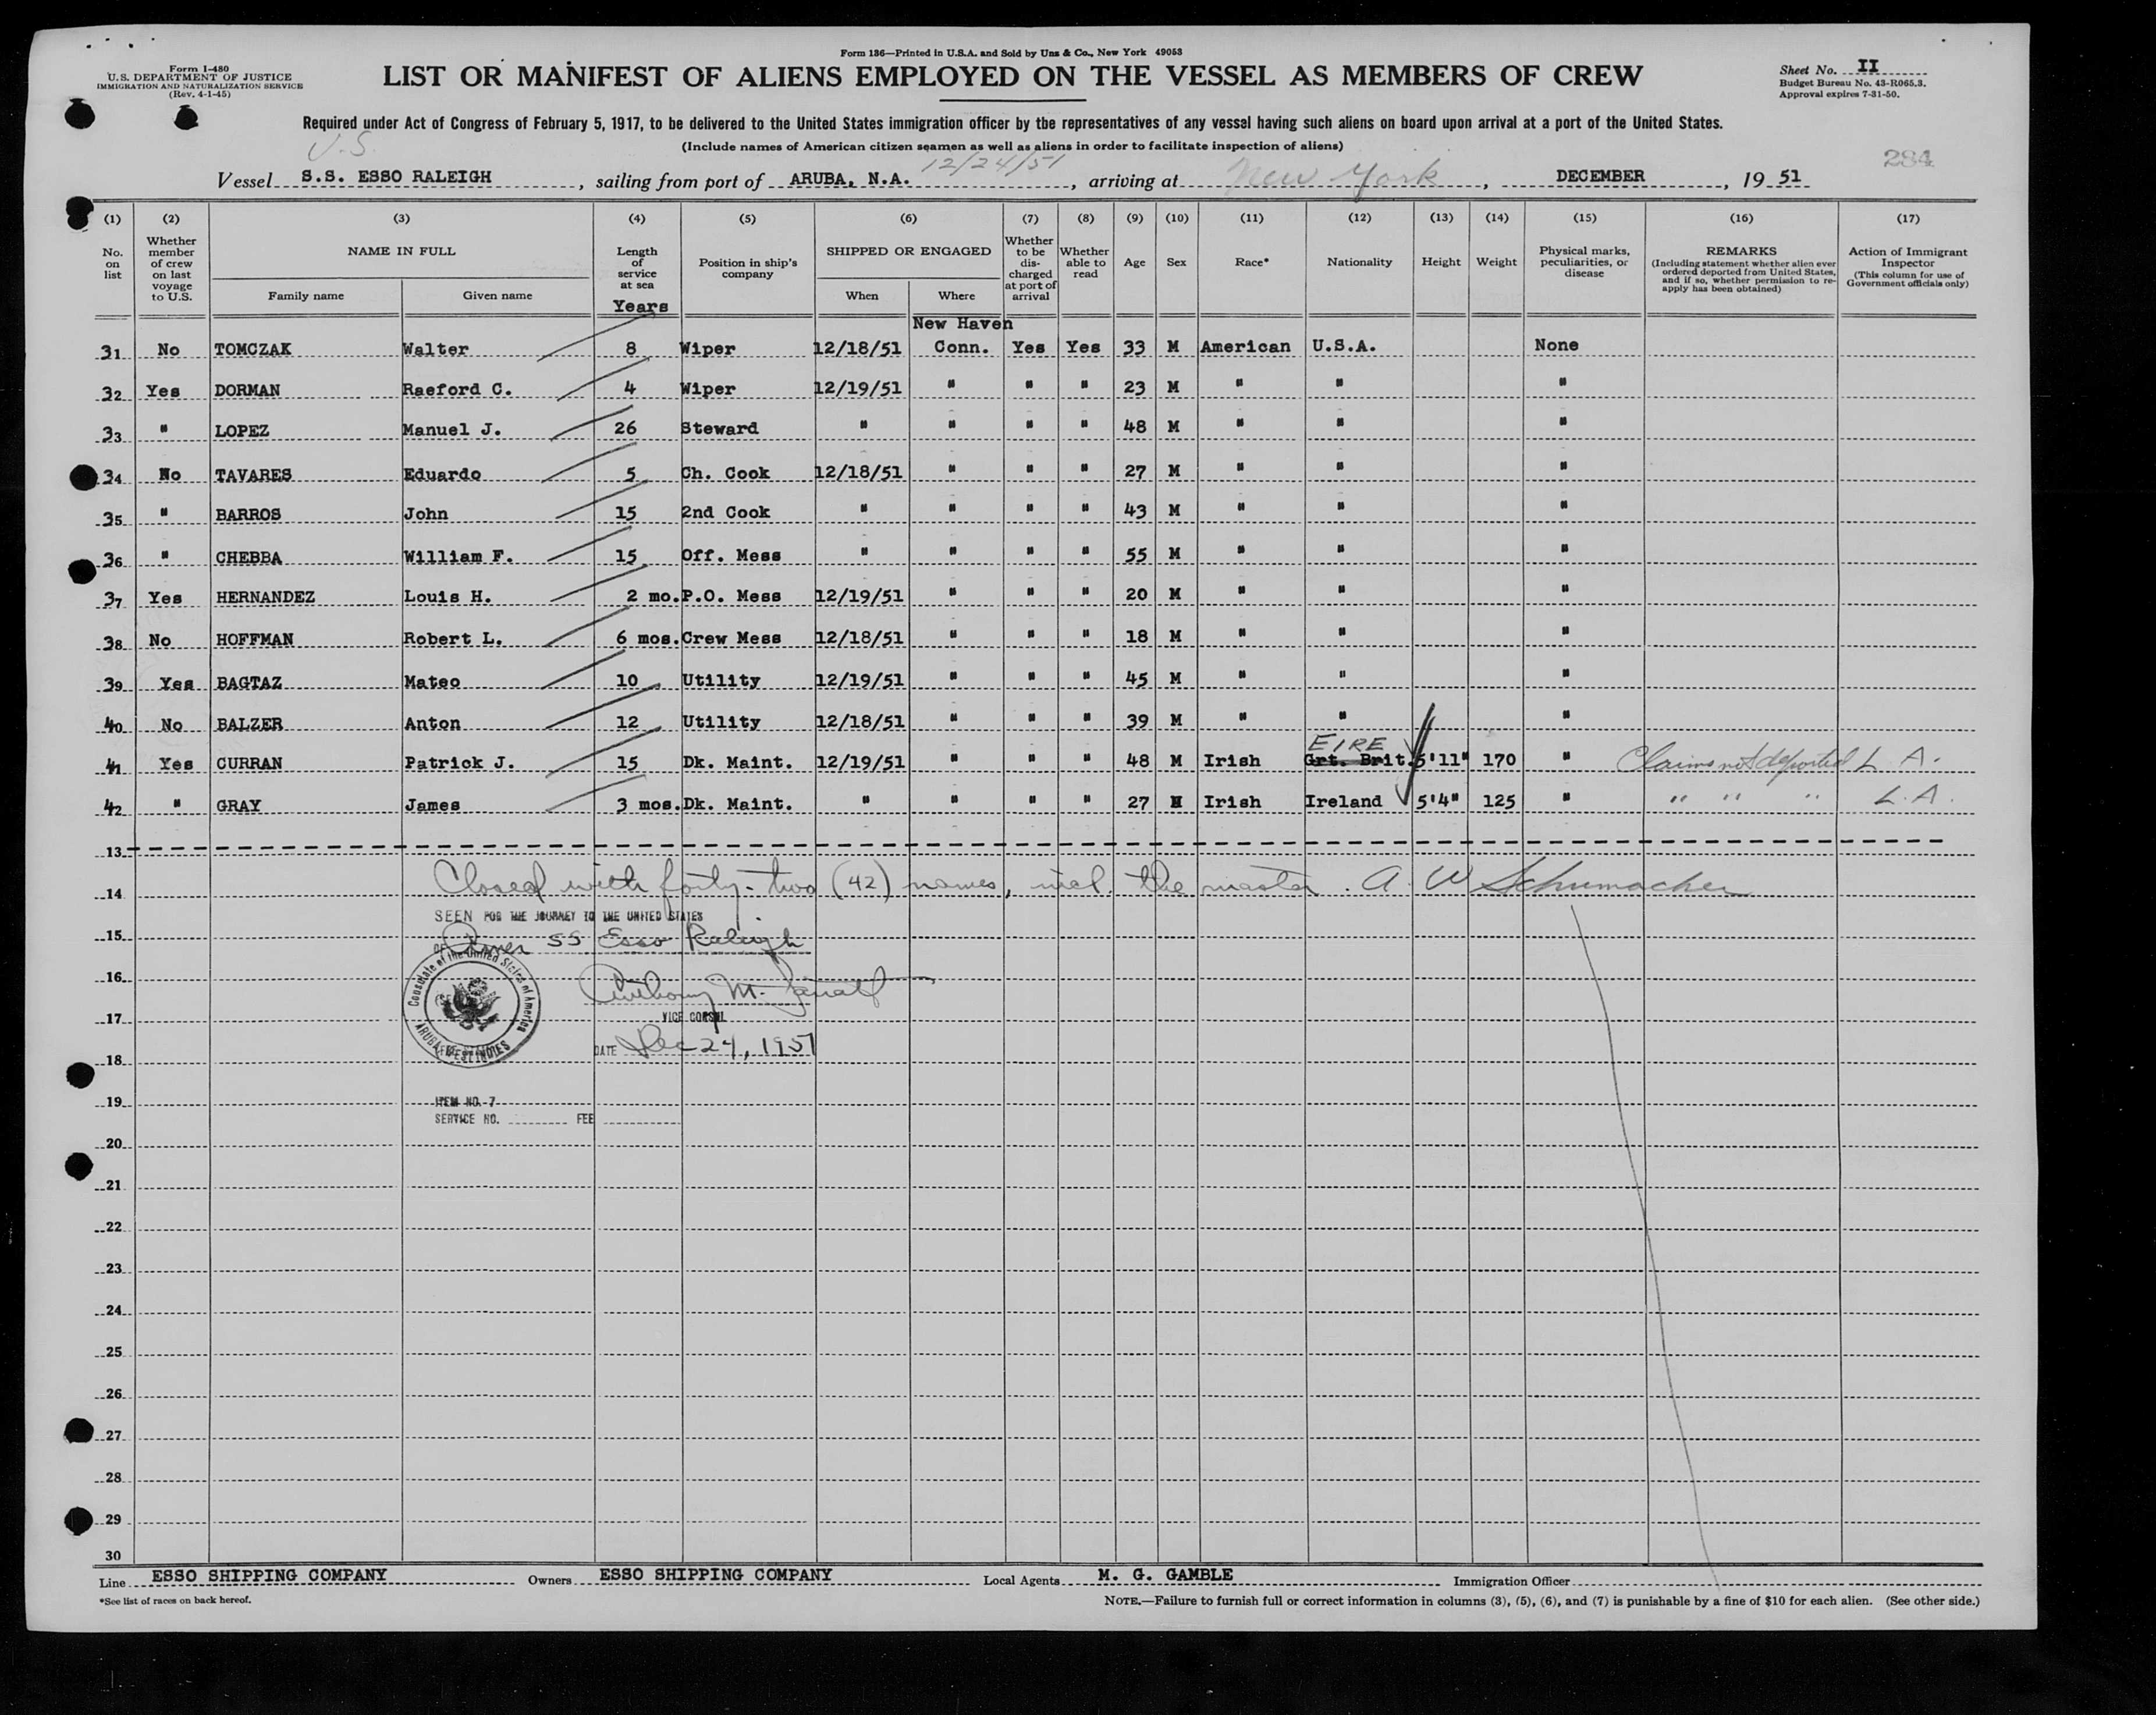 Form 136—Printed in U.S.A. and Sold by Unz & Co., New York 49053
Form I-480
U.S. DEPARTMENT OF JUSTICE
IMMIGRATION AND NATURALIZATION SERVICE
(Rev. 4-1-45)
LIST OR MANIFEST OF ALIENS EMPLOYED ON THE VESSEL AS MEMBERS OF CREW
Sheet No. II
Budget Bureau No. 43-R065.3.
Approval expires 7-31-50.
Required under Act of Congress of February 5, 1917, to be delivered to the United States immigration officer by the representatives of any vessel having such aliens on board upon arrival at a port of the United States.
(Include names of American citizen seamen as well as aliens in order to facilitate inspection of aliens)
U.S. 12/24/51 284
Vessel S.S. ESSO RALEIGH, sailing from port of ARUBA, N.A., arriving at New York, DECEMBER, 19 51
(1) (2) (3) (4) (5) (6) (7) (8) (9) (10) (11) (12) (13) (14) (15) (16) (17)
No. on list
Whether member of crew on last voyage to U.S.
NAME IN FULL
Family name Given name
Length of service at sea
Years
Position in ship's company
SHIPPED OR ENGAGED
When Where
Whether to be discharged at port of arrival
Whether able to read
Age
Sex
Race*
Nationality
Height
Weight
Physical marks, peculiarities, or disease
REMARKS
(Including statement whether alien ever ordered deported from United States, and if so, whether permission to re-apply has been obtained)
Action of Immigrant Inspector
(This column for use of Government officials only)
New Haven
31 No TOMCZAK Walter 8 Wiper 12/18/51 Conn. Yes Yes 33 M American U.S.A. None
32 Yes DORMAN Raeford C. 4 Wiper 12/19/51 " " " 23 M " " "
33 " LOPEZ Manuel J. 26 Steward " " " " 48 M " " "
34 No TAVARES Eduardo 5 Ch. Cook 12/18/51 " " " 27 M " " "
35 " BARROS John 15 2nd Cook " " " " 43 M " " "
36 " CHEBBA William F. 15 Off. Mess " " " " 55 M " " "
37 Yes HERNANDEZ Louis H. 2 mo. P.O. Mess 12/19/51 " " " 20 M " " "
38 No HOFFMAN Robert L. 6 mos. Crew Mess 12/18/51 " " " 18 M " " "
39 Yes BAGTAZ Mateo 10 Utility 12/19/51 " " " 45 M " " "
40 No BALZER Anton 12 Utility 12/18/51 " " " 39 M " " "
EIRE
41 Yes CURRAN Patrick J. 15 Dk. Maint. 12/19/51 " " " 48 M Irish Grt. Brit. 5'11" 170 " Claims not deported L. A.
42 " GRAY James 3 mos. Dk. Maint. " " " " 27 M Irish Ireland 5'4" 125 " " " " L.A.
13
14 Closed with forty-two (42) names, incl. the master. A. W Schumacher
SEEN FOR THE JOURNEY TO THE UNITED STATES
15 OF SS Esso Raleigh
Consulate of the United States of America
ARUBA, WEST INDIES
16 Anthony M.
17 VICE CONSUL
18 DATE Dec 24, 1951
19 ITEM NO. 7
SERVICE NO. FEE
20
21
22
23
24
25
26
27
28
29
30
Line ESSO SHIPPING COMPANY Owners ESSO SHIPPING COMPANY Local Agents M. G. GAMBLE Immigration Officer
*See list of races on back hereof.
NOTE.—Failure to furnish full or correct information in columns (3), (5), (6), and (7) is punishable by a fine of $10 for each alien. (See other side.)